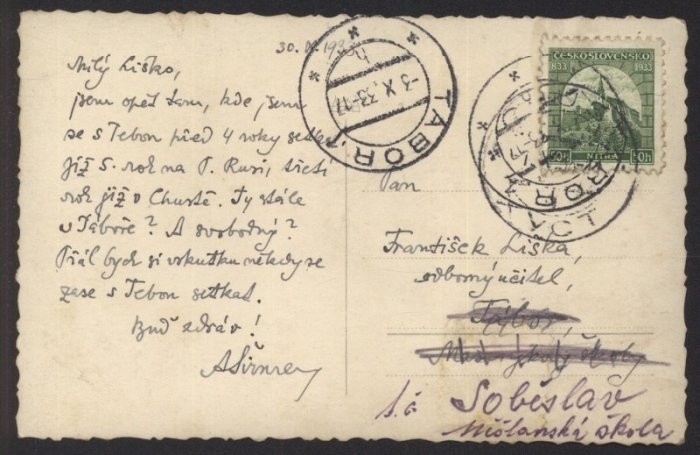 30. IX. 193
Milý Liško,
jsem opět tam, kde jsem
se s Tebou před 4 roky setkal
již 5. rok na P. Rusi, třetí
rok již v Chustě. Ty stále
v Táboře? A svobodný?
Přál bych si vskutku někdy se
zase s Tebou setkat.
Buď zdráv!
TÁBOR 1
-3.X.33-17
ČESKOSLOVENSKO
833 1933
50h NITRA 50h
Pan
František Liška,
odborný učitel,
Tábor,
školy
Soběslav
Měšťanská škola